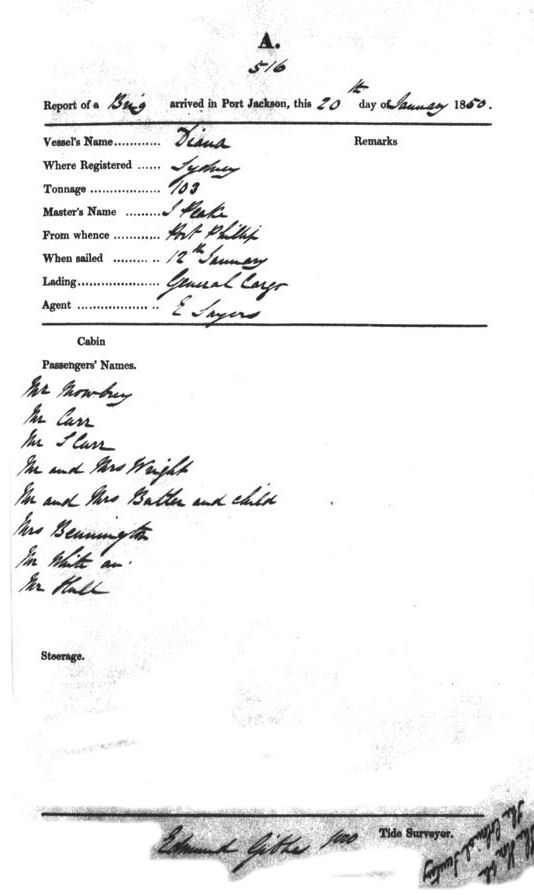 A.
516
Report of a Brig arrived in Port Jackson, this 20th day of January 1850.
Vessel's Name............ Diana Remarks
Where Registered ...... Sydney
Tonnage .................. 103
Master's Name ......... J Peake
From whence ............ Port Phillip
When sailed ......... .. 12th January
Lading..................... General Cargo
Agent .................. .. E Sayers
Cabin
Passengers' Names.
Mr Mowbrey
Mr Carr
Mr J Carr
Mr and Mrs Wright
Mr and Mrs Butler and child
Mrs Bennington
Mr White an
Mr Hull
Steerage.
Edmund Tide Surveyor.
The Colonial